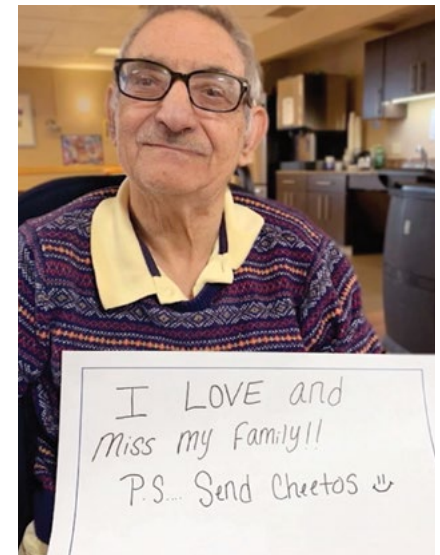 I LOVE and
Miss my Family!!
P.S.... Send Cheetos